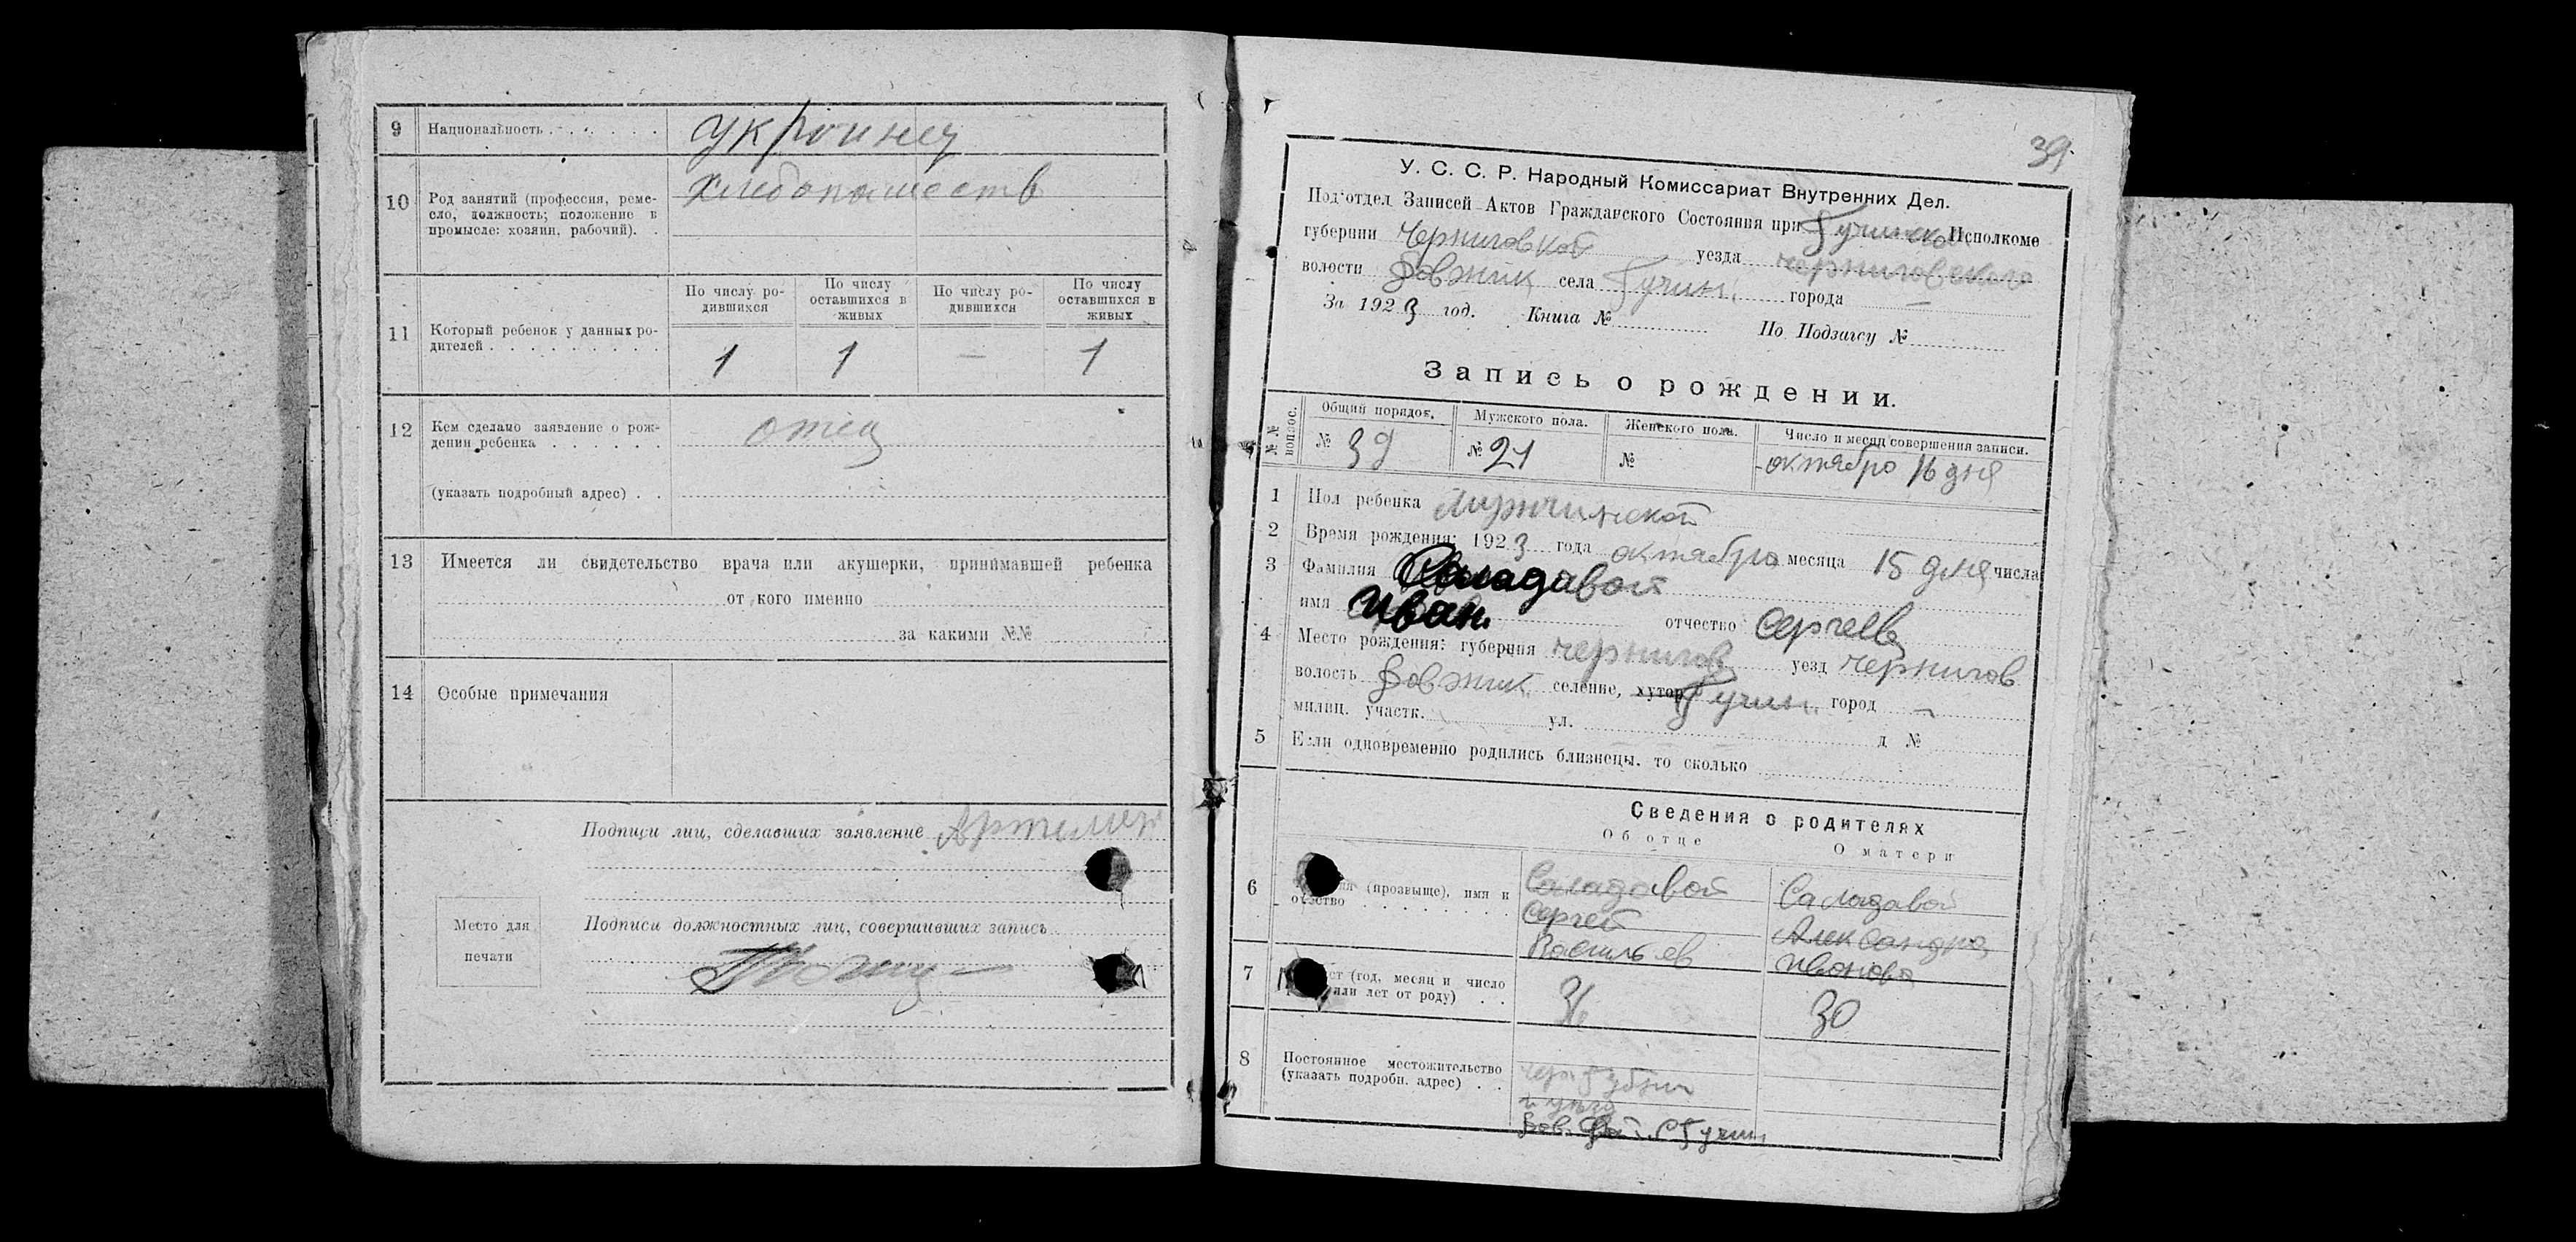 9 Национальность . . . . . . украинец
10 Род занятий (профессия, реме-
сло, должность; положение в
промысле: хозяин, рабочий). .
Хлебопашеств
По числу ро-
дившихся
По числу
оставшихся в
живых
По числу ро-
дившихся
По числу
оставшихся в
живых
11 Который ребенок у данных ро-
дителей . . . . . . . . .
1 1 — 1
12 Кем сделано заявление о рож-
дении ребенка . . . . . .
отец
(указать подробный адрес) . .
13 Имеется ли свидетельство врача или акушерки, принимавшей ребенка
от кого именно
за какими №№
14 Особые примечания
Подписи лиц, сделавших заявление
Подписи должностных лиц, совершивших запись
Место для
печати
39
У. С. С. Р. Народный Комиссариат Внутренних Дел.
Под‘отдел Записей Актов Гражданского Состояния при Гучинском Исполкоме
губернии Черниговской уезда черниговского
волости Ровжик села Гучин города —
За 1923 год. Книга № По Подзагсу №
Запись о рождении.
№№ вопрос. Общий порядок. Мужского пола. Женского пола. Число и месяц совершения записи.
№ 39 № 21 № октябро 16 дня
1 Пол ребенка Мужчинской
2 Время рождения: 1923 года октябро месяца 15 дня числа
3 Фамилия Саладавой
имя Иван. отчество Сергеев
4 Место рождения: губерния чернигов уезд чернигов
волость Ровжик селение, хутор Гучин город —
милиц. участк. ул. д №
5 Если одновременно родились близнецы, то сколько
Сведения о родителях
Об отце О матери
6 (прозвище), имя и
отчество . . . . . . . . .
Саладавой
Сергей
Васильев
Саладавой
Александра
Иванова
7 (год, месяц и число
или лет от роду) . .
31 30
8 Постоянное местожительство
(указать подробн. адрес) . .
Гучин